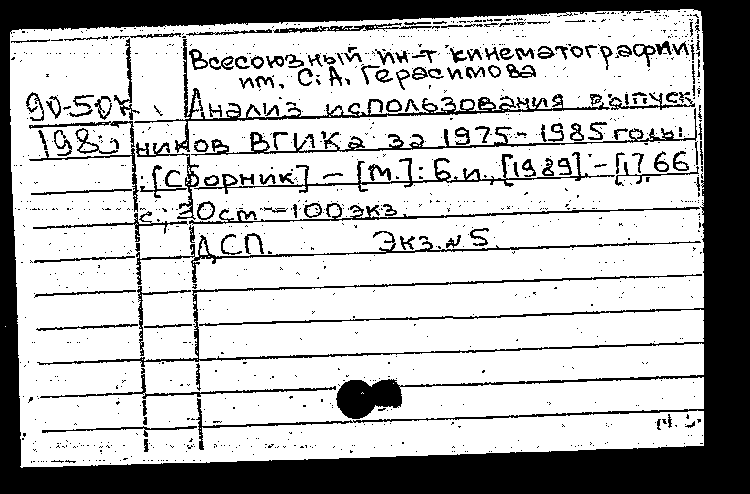 Всесоюзный ин-т кинематографии
им. С.А. Герасимова
90-50к Анализ использования выпуск
ников ВГИКа за 1975-1985 годы
:[Сборник] - [М.]: Б.и., [1989]. - [1], 66
с.; 20 см - 100 экз.
ДСП. Экз. № 5.